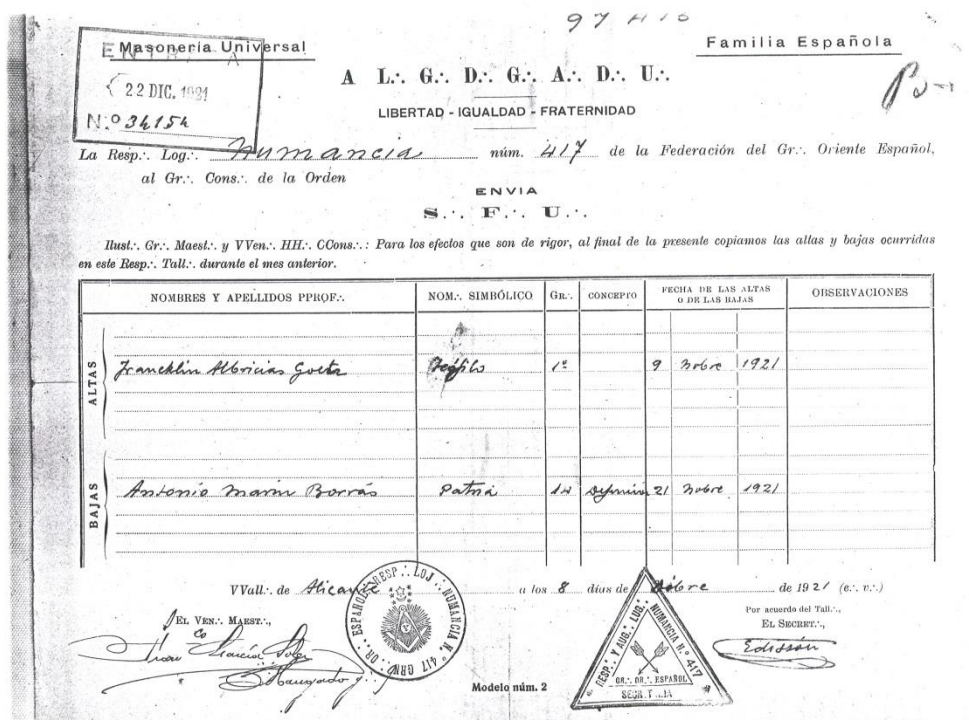 97 A 10
Masonería Universal
Familia Española
ENTRADA
22 DIC. 1921
N.º 34154
A L∴ G∴ D∴ G∴ A∴ D∴ U∴
LIBERTAD - IGUALDAD - FRATERNIDAD
La Resp∴ Log∴ Numancia núm. 417 de la Federación del Gr∴ Oriente Español,
al Gr∴ Cons∴ de la Orden
ENVIA
S∴ F∴ U∴
Ilust∴ Gr∴ Maest∴ y VVen∴ HH∴ CCons∴: Para los efectos que son de rigor, al final de la presente copiamos las altas y bajas ocurridas
en este Resp∴ Tall∴ durante el mes anterior.
NOMBRES Y APELLIDOS PPROF∴ NOM∴ SIMBÓLICO GR∴ CONCEPTO FECHA DE LAS ALTAS O DE LAS BAJAS OBSERVACIONES
ALTAS
Francklin Albricias Goetz Teófilo 1º 9 Nobre 1921
BAJAS
Antonio Marín Borrás Patria 21 Nobre 1921
VVall∴ de Alicante a los 8 días de de 1921 (e∴ v∴)
EL VEN∴ MAEST∴,
Por acuerdo del Tall∴,
EL SECRET∴,
Edisson
RESP∴ LOJ∴ NUMANCIA N.º 417 OR∴ ESPAÑOL
RESP∴ Y AUG∴ LOG∴ NUMANCIA N.º 417
GR∴ OR∴ ESPAÑOL
Modelo núm. 2